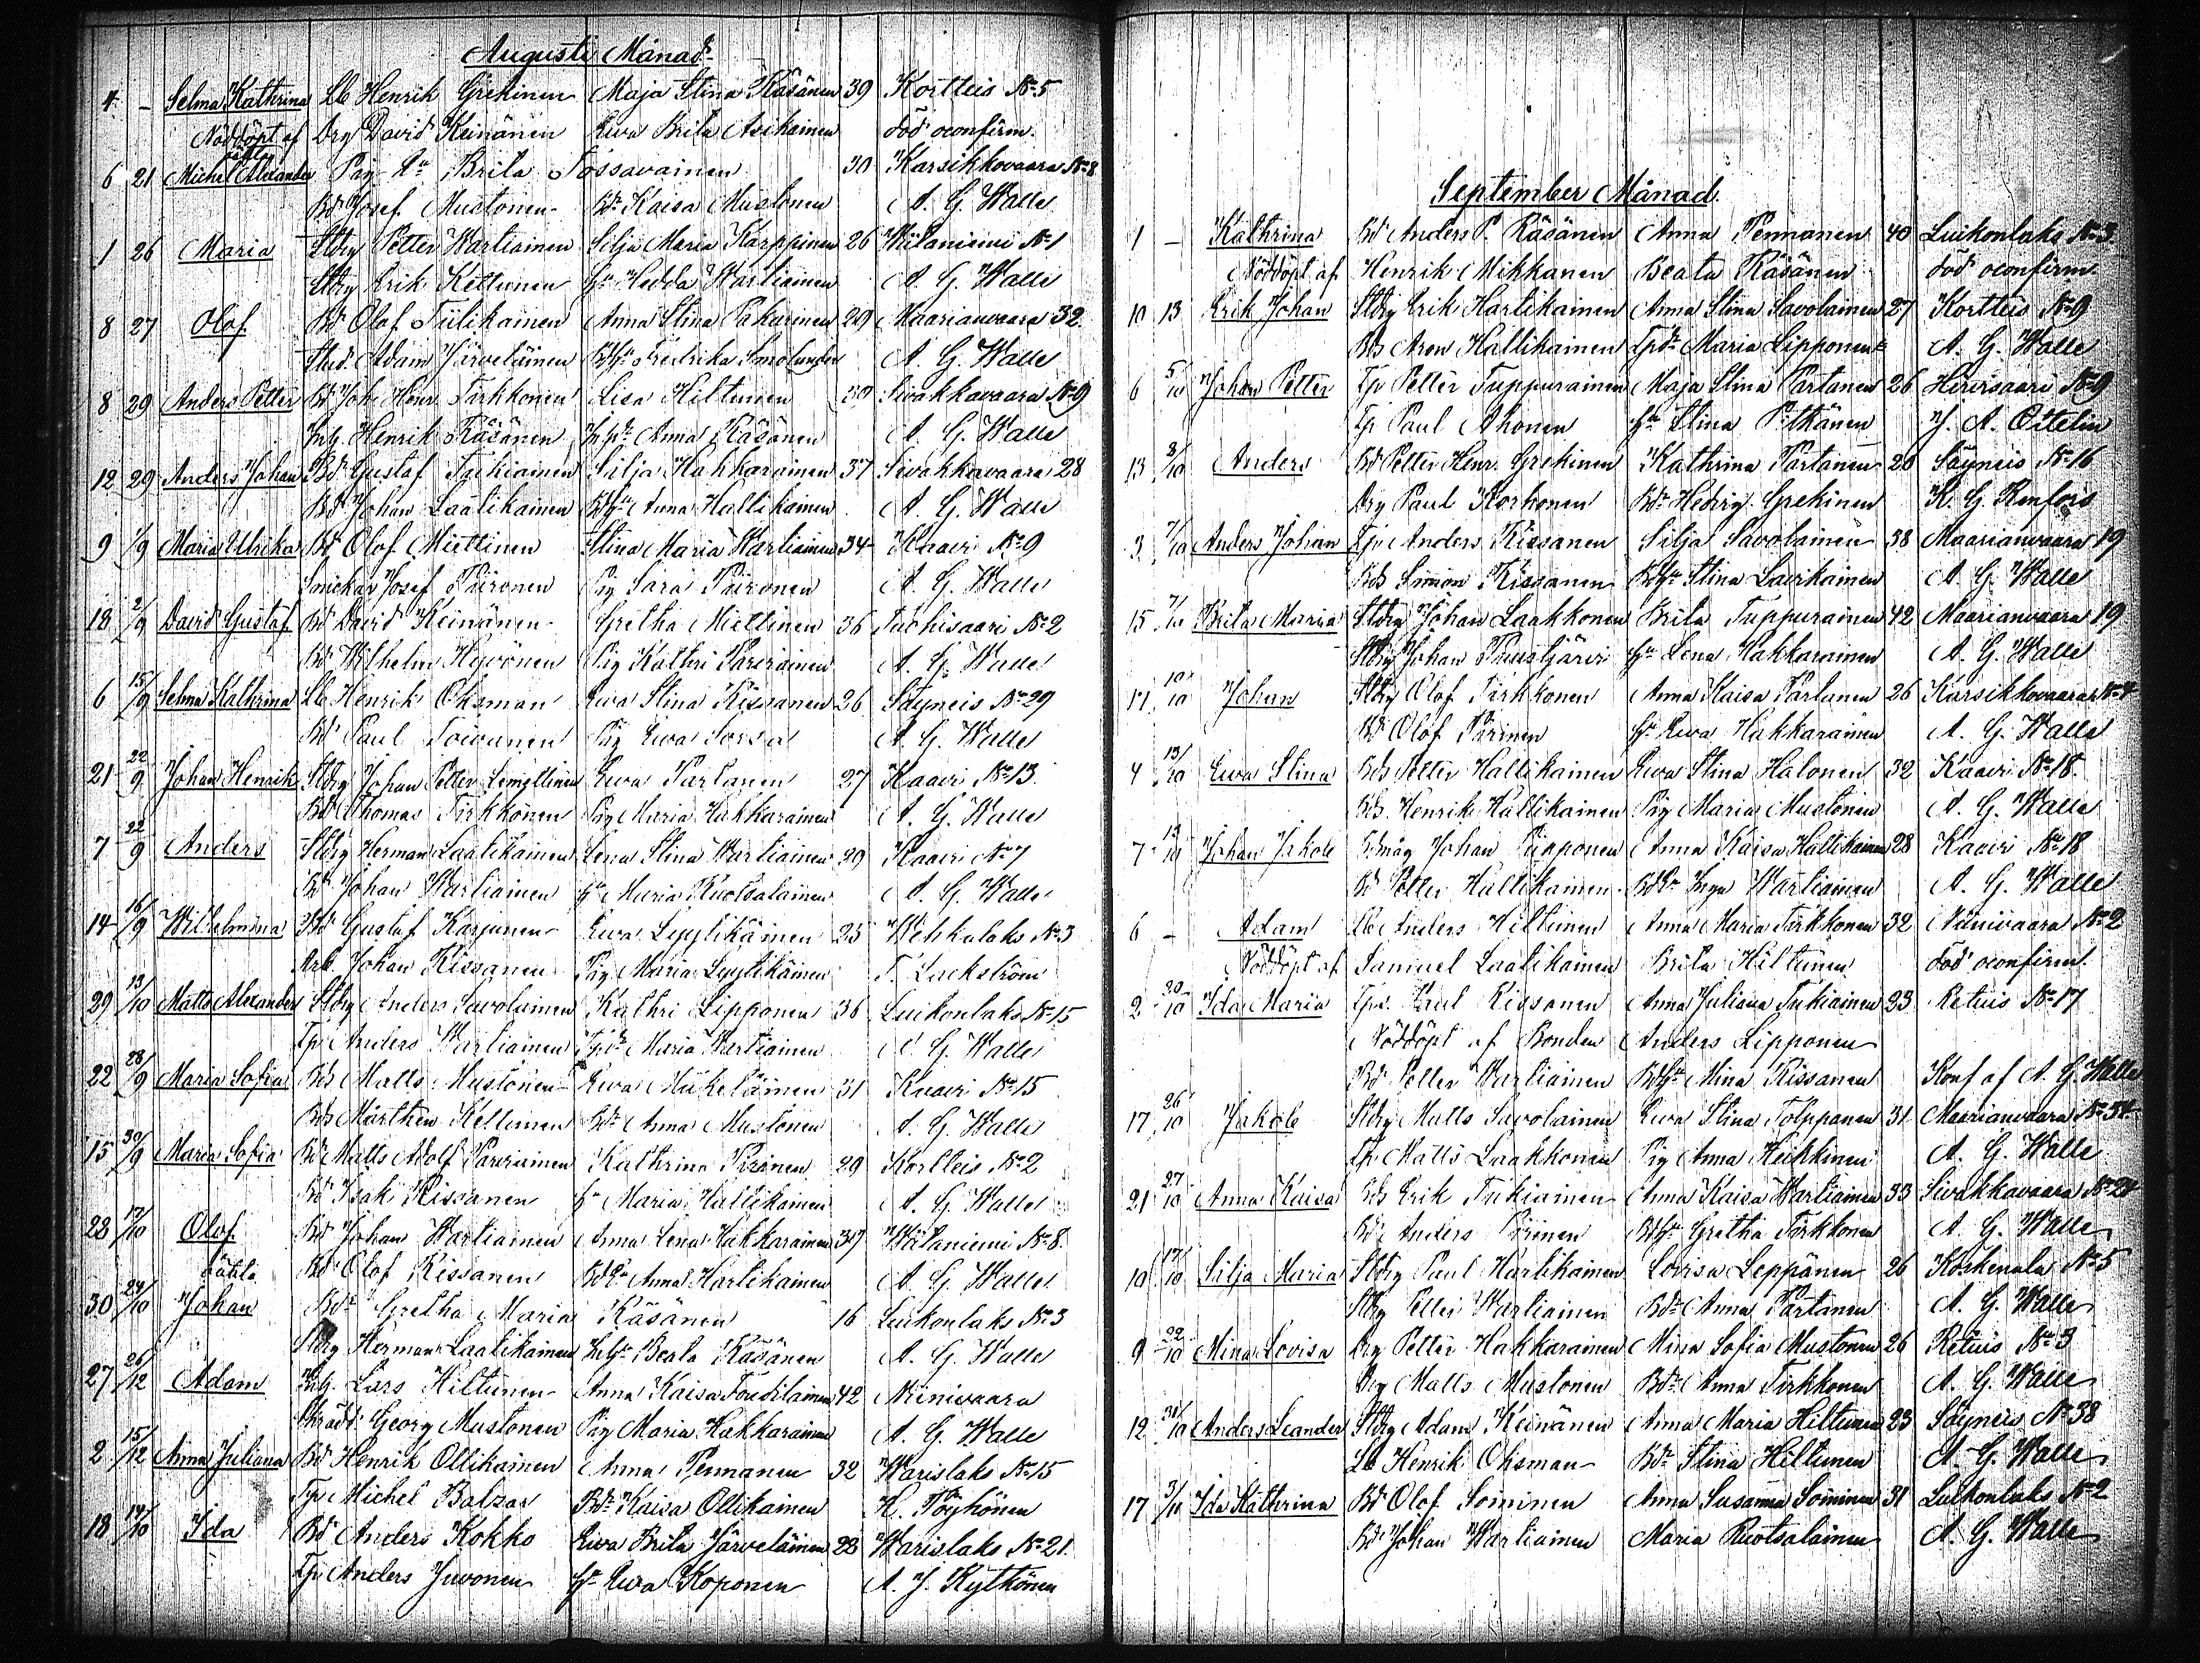 Augusti Månad
4. – Selma Kathrina Lb Henrik Grekinen Maja Stina Räsänen 39 Kortteis No 5
Nöddöpt af Drg David Keinänen Ewa Brita Asikainen död oconfirm.
oäkta
6 21 Michel Alexander Pig. Brita Tossavainen 30 Karsikkovaara No 8
Bd Josef Mustonen Bdr Kaisa Mustonen A. G. Walle
1 26 Maria Stdrg Petter Wartiainen Silja Maria Karppinen 26 Wiitaniemi No 1
Stdrg Erik Kettunen Hu Hedda Wartiainen A. G. Walle
8 27 Olof Bd Olof Tiilikainen Anna Stina Pakarinen 29 Maarianvaara 32.
Stud. Adam Järveläinen Bdhu Fredrika Smolander A. G. Walle
8 29 Anders Petter Bd Joh. Henr. Tirkkonen Lisa Hiltunen 30 Sivakkavaara No 9
Inh. Henrik Räsänen Anna Räsänen A. G. Walle
12 29 Anders Johan Bd Gustaf Tukiainen Silja Hakkarainen 37 Sivakkavaara 28
Bd Johan Laatikainen Bdhu Anna Hallikainen A. G. Walle
9 1/9 Maria Ulrika Bd Olof Miettinen Stina Maria Wartiainen 34 Kaavi No 9
Snickar Josef Piironen Pig Sara Piironen A. G. Walle
18 2/9 David Gustaf Bd David Keinänen Gretha Miettinen 36 No 2
Bd Wilhelm Hyvönen Pig Kathri Parviainen A. G. Walle
6 15/9 Selma Kathrina Lb Henrik Ohsman Ewa Stina Kissanen 26 Säyneis No 29
Bd Paul Toivanen Pig Ewa Sorsa A. G. Walle
21 22/9 Johan Henrik Stdrg Johan Petter Ewa Partanen 27 Kaavi No 13.
Bd Thomas Tirkkonen Pig Maria Hakkarainen A. G. Walle
7 22/9 Anders Stdrg Herman Laatikainen Lena Stina Wartiainen 29 Kaavi No 7
Bd Johan Wartiainen Hu Maria Ruotsalainen A. G. Walle
14 16/9 Wilhelmina Bd Gustaf Karjunen Ewa Lyytikäinen 25 Wehkalaks No 3
Arb. Johan Kissanen Pig Maria Lyytikäinen F. Lackström
29 13/10 Matts Alexander Stdrg Anders Savolainen Kathri Lipponen 36 Luikonlaks No 15
Tp Anders Wartiainen Maria Wartiainen A. G. Walle
22 28/9 Maria Sofia Bds Matts Mustonen Ewa Miikeläinen 31 Kaavi No 15
Bds Mårthen Kettunen Bdr Anna Mustonen A. G. Walle
15 30/9 Maria Sofia Bd Matts Adolf Parviainen Kathrina Pironen 29 Kortteis No 2
Bd Isak Kissanen Hu Maria Hallikainen A. G. Walle
28 17/10 Olof Bd Johan Wartiainen Anna Lena Hakkarainen 37 Wiitaniemi No 8.
Bd Olof Kissanen Anna Hartikainen A. G. Walle
oäkta
30 24/10 Johan Bdr Gretha Maria Räsänen 16 Luikonlaks No 3
Stdrg Herman Laatikainen Beata Räsänen A. G. Walle
27 26/12 Adam Inh. Lars Hiltunen Anna Kaisa 42 Niinivaara
Skrädd. Georg Mustonen Pig Maria Hakkarainen A. G. Walle
2 15/12 Anna Juliana Bd Henrik Ollikainen Anna Pennanen 32 Warislaks No 15
Tp Michel Balzar Bdr Kaisa Ollikainen K. Pöyhönen
18 14/10 Ida Bd Anders Kokko Ewa Brita Järveläinen 22 Warislaks No 21.
Tp Anders Juvonen Hu Ewa Koponen A. J. Kytkönen
September Månad.
1 – Kathrina Bd Anders P. Räsänen Anna Pennanen 40 Luikonlaks No 3.
Nöddöpt af Henrik Mikkanen Beata Räsänen död oconfirm.
10 13 Erik Johan Stdrg Erik Hartikainen Anna Stina Savolainen 27 Kortteis No 9
Bds Aron Hallikainen Maria Lipponen A. G. Walle
6 5/10 Johan Petter Tp Petter Tuppurainen Maja Stina Partanen 26 Hirvisaari No 9
Tp Paul Ahonen Hu Stina Pitkänen J. A. Oittelin
13 8/10 Anders Bd Petter Henr. Grekinen Kathrina Partanen 28 Säyneis No 16
Drg Paul Korhonen Bdr Hedvig Grekinen K. G. Renfors
3 7/10 Anders Johan Tp Anders Kissanen Silja Savolainen 38 Maarianvaara 19
Bds Simon Kissanen Bdhu Stina Laurikainen A. G. Walle
15 7/10 Brita Maria Stdrg Johan Laakkonen Brita Tuppurainen 42 Maarianvaara 19
Stdrg Johan Puustjärvi Hu Lena Hakkarainen A. G. Walle
17 10/10 Johan Stdrg Olof Tirkkonen Anna Kaisa Partanen 26 Karsikkovaara No 4
Bd Olof Piirinen Hu Ewa Hakkarainen A. G. Walle
4 13/10 Ewa Stina Bds Petter Hallikainen Ewa Stina Halonen 32 Kaavi No 18.
Bds. Henrik Hallikainen Pig Maria Mustonen A. G. Walle
7 13/10 Johan Jakob Bdmåg Johan Anna Kaisa Hallikainen 28 Kaavi No 18
Bd Petter Hallikainen Inga Wartiainen A. G. Walle
6 – Adam Lb Anders Hiltunen Anna Maria Tirkkonen 32 Niinivaara No 2
Nöddöpt af Samuel Laatikainen Brita Hiltunen död oconfirm.
2 20/10 Ida Maria Tps. Paul Kissanen Anna Juliana Tukiainen 23 Retuis No 17
Nöddöpt af Bonden Anders Lipponen
Bd Petter Wartiainen Bdhu Mina Kissanen Konf af A. G. Walle
17 26/10 Jakob Stdrg Matts Savolainen Ewa Stina Tolppanen 31 Maarianvaara No 34
Tp Matts Laakkonen Pig Anna Heikkinen A. G. Walle
21 27/10 Anna Kaisa Bds Erik Tukiainen Anna Kaisa Wartiainen 33 Sivakkavaara No 24
Bd Anders Piirinen Bdhu Gretha Tirkkonen A. G. Walle
10 17/10 Silja Maria Stdrg Paul Hartikainen Lovisa Leppänen 26 Koskenala No 5
Stdrg Petter Wartiainen Bdr Anna Partanen A. G. Walle
9 22/10 Mina Lovisa Drg Petter Hakkarainen Mina Sofia Mustonen 26 Retuis No 3
Drg Matts Mustonen Bdr Anna Tirkkonen A. G. Walle
12 31/10 Anders Leander Stdrg Adam Keinänen Anna Maria Hiltunen 23 Säyneis No 38
Lb Henrik Ohsman Bdr Stina Hiltunen A. G. Walle
17 3/11 Ida Kathrina Bd Olof Soininen Anna Susanna Soininen 31 Luikonlaks No 2
Bd Johan Wartiainen Maria Ruotsalainen A. G. Walle